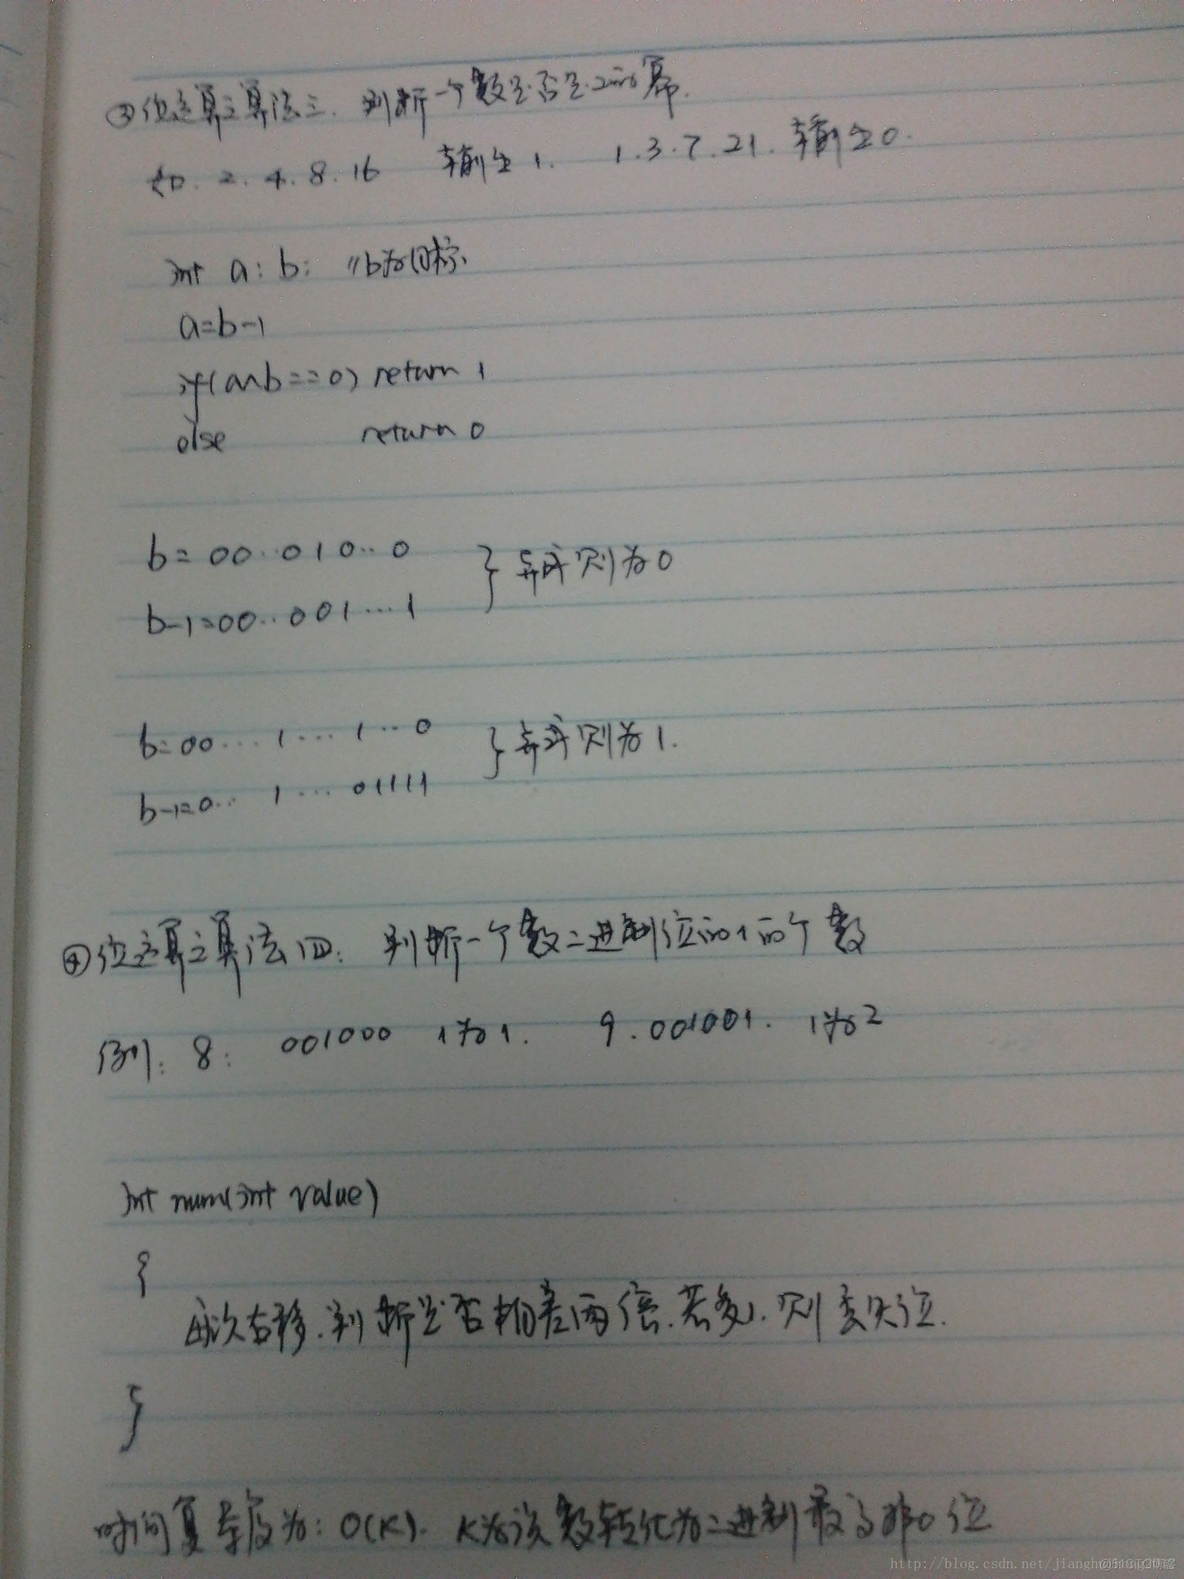 ③位运算之算法三. 判断一个数是否是2的幂.
如. 2. 4. 8. 16 输出1. 1. 3. 7. 21. 输出0.
int a; b; //b为目标
a=b-1
if(a^b==0) return 1
else return 0
b= 00..010..0
b-1=00..001...1
} 异或则为0
b=00...1...1..0
b-1=0.. 1...01111
} 异或则为1.
④位运算之算法四: 判断一个数二进制位的1的个数
例: 8: 001000 1为1. 9. 001001. 1为2
int num(int value)
{
依次右移.判断是否相差两倍.若多1.则丢失位.
}
时间复杂度为: O(K). K为该数转化为二进制最高非0位